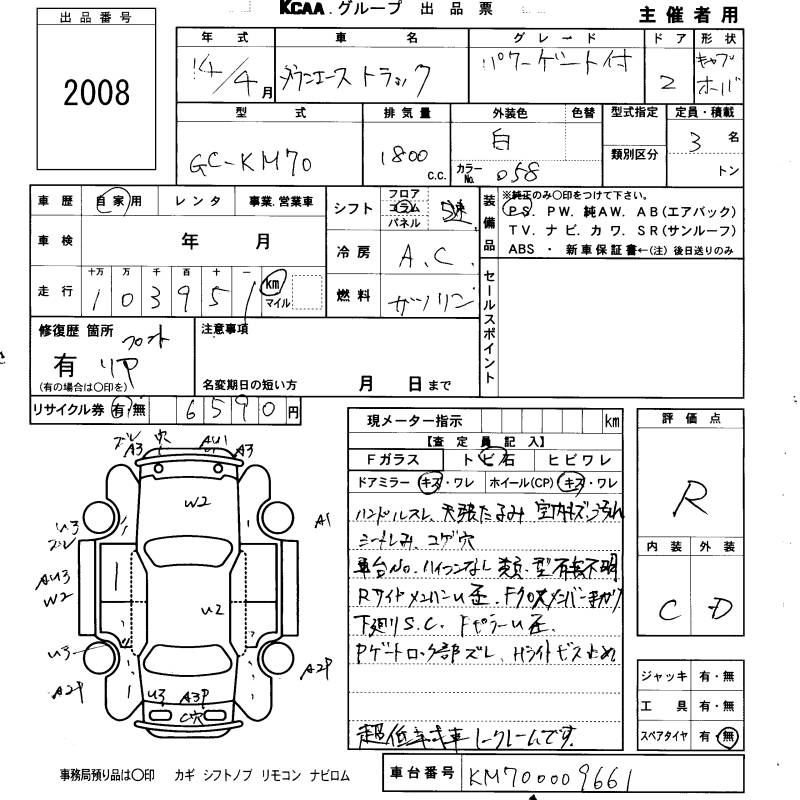 KCAA.グループ 出品票
主催者用
出品番号
2008
年式 車名 グレード ドア 形状
14/4月 タウンエーストラック パワーゲート付 2
型式 排気量 外装色 色替 型式指定 定員・積載
GC-KM70 1800 c.c. 白 カラーNo. 058 類別区分 3名
トン
車歴 自家用 レンタ 事業.営業車
シフト フロア コラム パネル 5速
装備品 ※純正のみ〇印をつけて下さい。
PS. PW. 純AW. AB(エアバック)
TV. ナビ. カワ. SR(サンルーフ)
ABS ・ 新車保証書←(注) 後日送りのみ
車検 年 月
冷房 A.C.
走行 十万 万 千 百 十 一
103951 km マイル
燃料 ガソリン
セールスポイント
修復歴 箇所 フロント
有 リヤ
(有の場合は〇印を)
注意事項
名変期日の短い方 月 日まで
リサイクル券 有・無 6590円
現メーター指示 km
【査定員記入】
Fガラス トビ石 ヒビワレ
ドアミラー キズ・ワレ ホイール(CP) キズ・ワレ
ハンドルスレ、天張たるみ 室内キズ汚れ
シートしみ、コゲ穴
車台No.
RサイドメンバーU歪.
下廻りS.C. FピラーU歪.
Pゲートロック部ズレ、Hライトビス止め
クレームです.
評価点
R
内装 外装
C D
ジャッキ 有・無
工具 有・無
スペアタイヤ 有・無
ズレ A3 穴 AU1 A3
W2
U3 ズレ A1
AU3 W2
U2
U3
A2P A2P
U3 A3P
C穴
事務局預り品は〇印 カギ シフトノブ リモコン ナビロム
車台番号 KM70 0009661